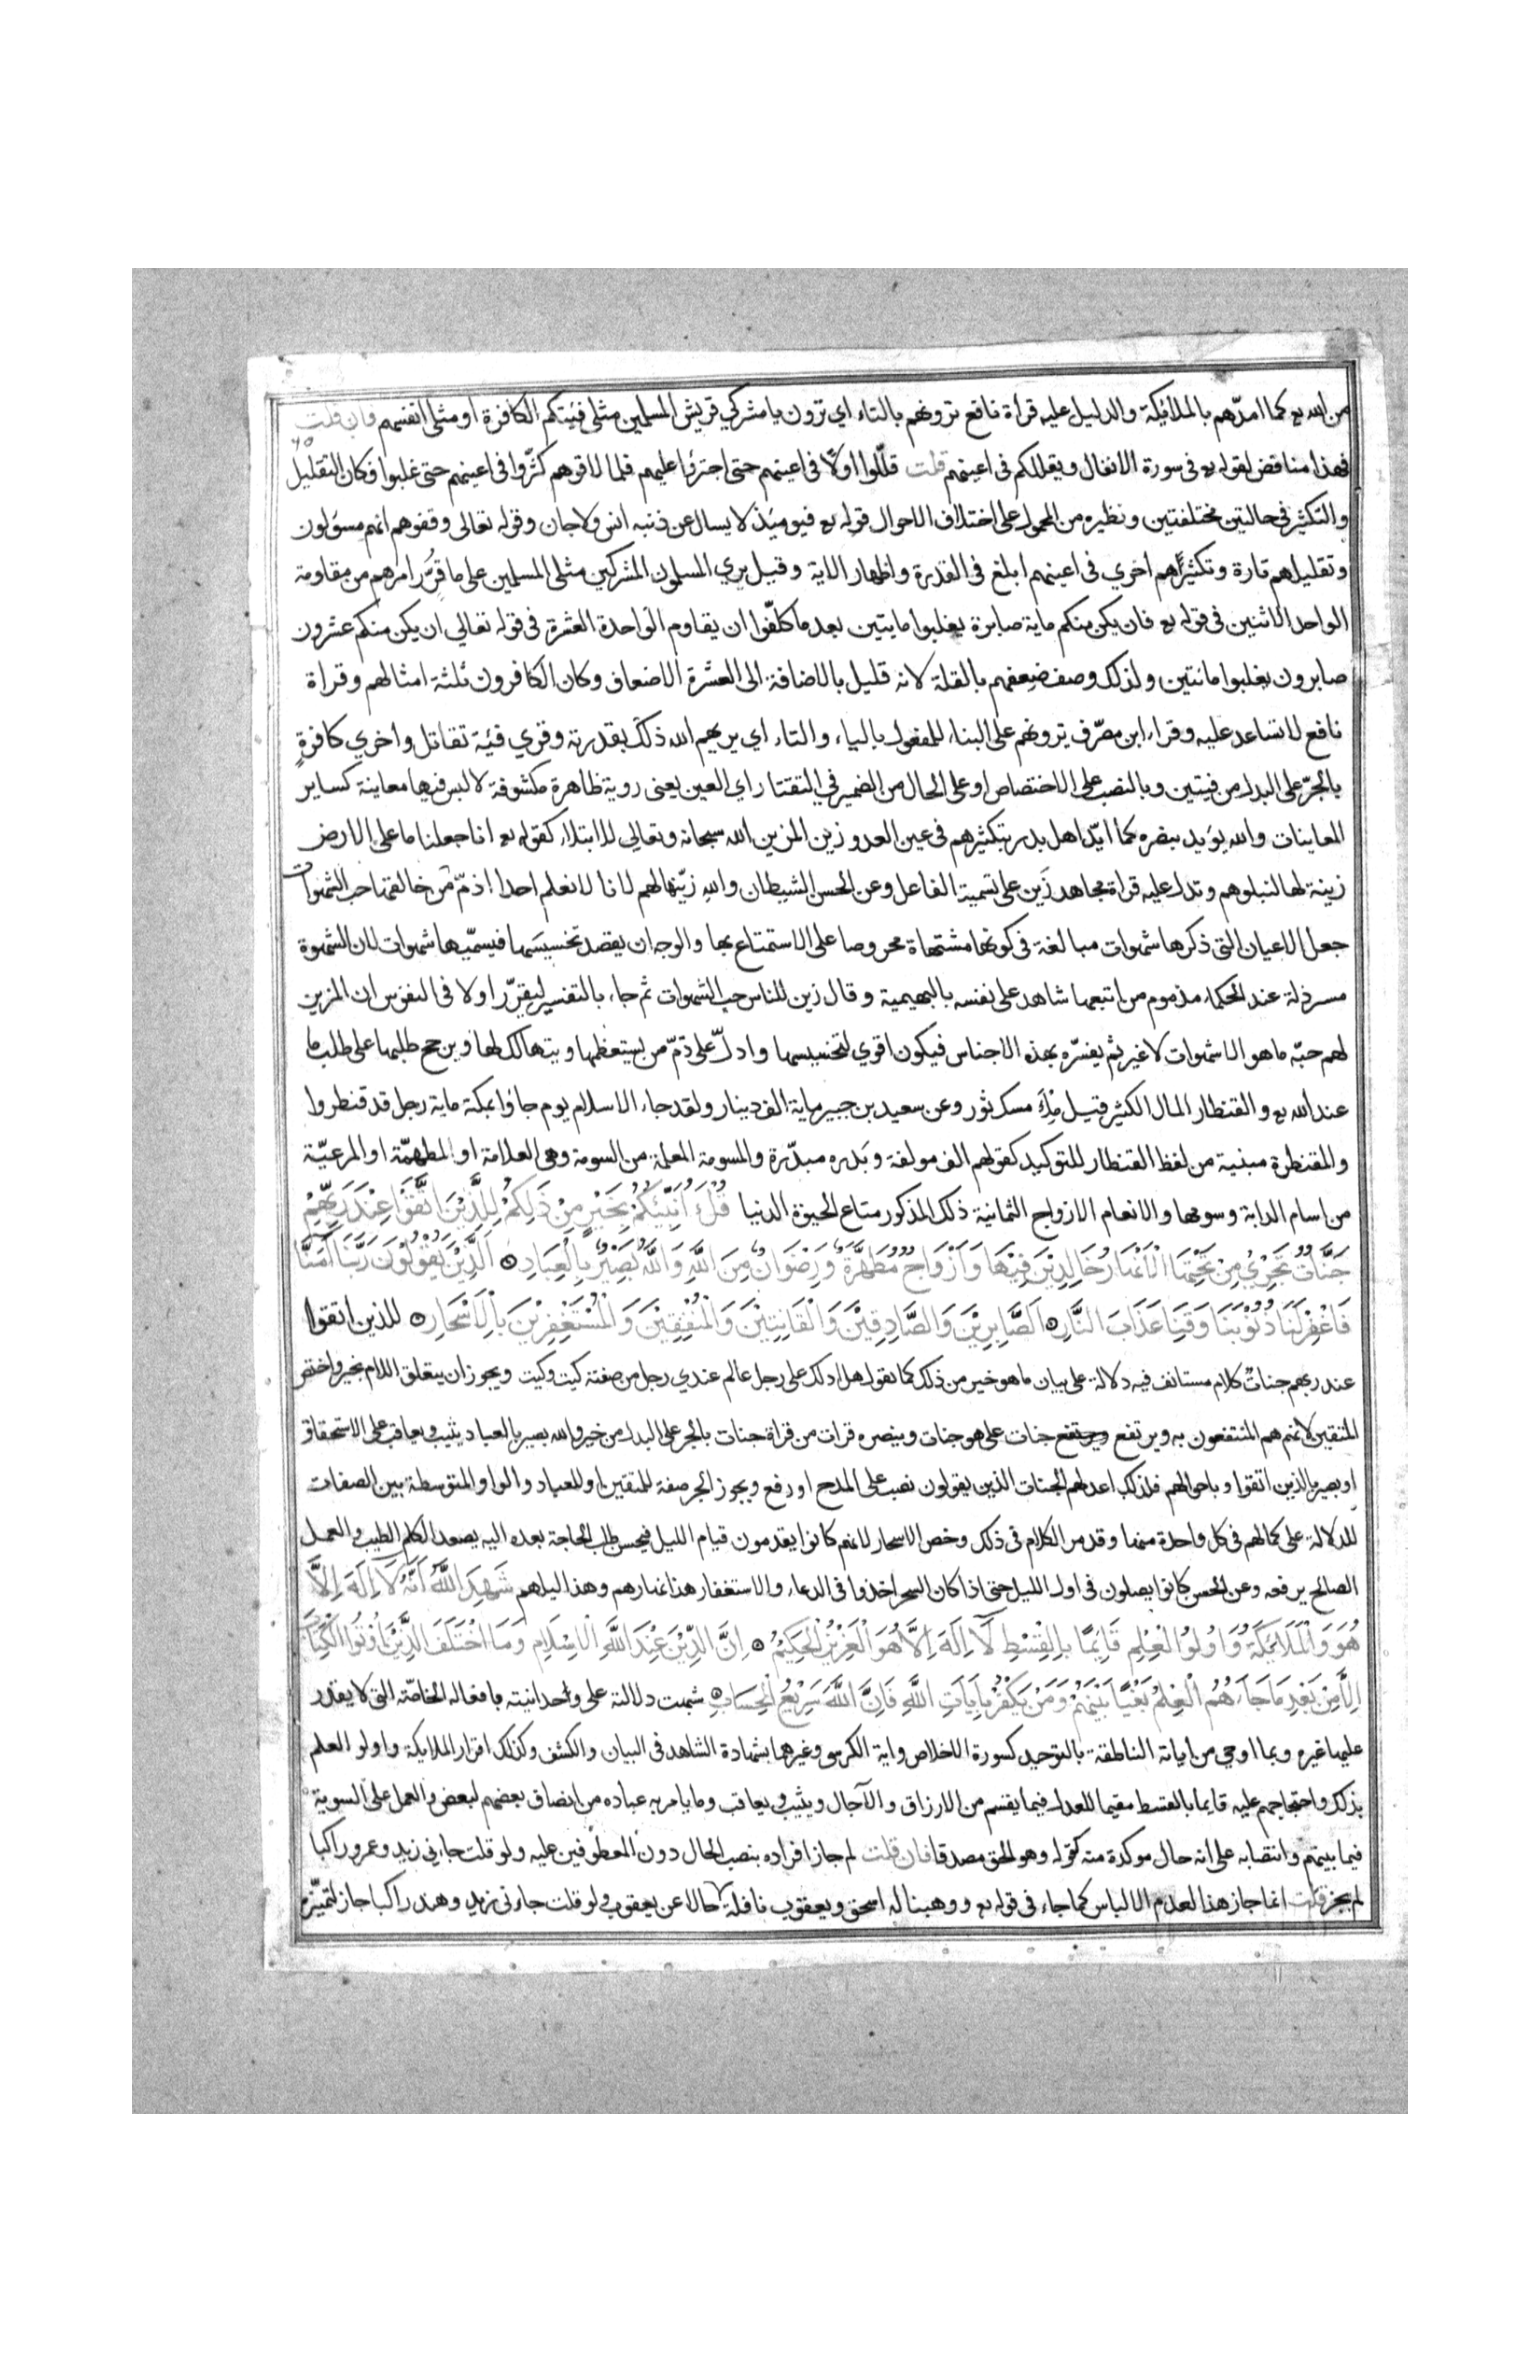 من الله تع كما امدّهم بالملائكة والدليل عليه قراة نافع ترونهم بالتاء اي ترون يا مشركي قريش المسلمين مثلى فئتكم الكافرة او مثلى انفسهم فان قلت
فهذا مناقض لقوله تع فى سورة الانفال ويقللكم فى اعينهم قلت قللّوا اولًا فى اعينهم حتى اجترؤا عليهم فلما لاقوهم كثّروا فى اعينهم حتى غلبوا فكان التقليل
والتكثير فى حالتين مختلفتين ونظيره من المحمول على اختلاف الاحوال قوله تع فيومئذ لا يسال عن ذنبه انس ولا جان وقوله تعالى وقفوهم انهم مسؤلون
وتقليلهم تارة وتكثيرًاهم اخري فى اعينهم ابلغ فى القدرة واظهار الاية وقيل يري المسلمون المشركين مثلى المسلمين على ما قرّر امرهم من مقاومة
الواحد الاثنين فى قوله تع فان يكن منكم ماية صابرة يغلبوا مايتين بعد ما كلّفوا ان يقاوم الواحدة العشرة فى قوله تعالي ان يكن منكم عشرون
صابرون يغلبوا مائتين ولذلك وصف ضعفهم بالقلة لانه قليل بالاضافة الى العشرة الاضعاف وكان الكافرون ثلثة امثالهم وقراة
نافع لا تساعد عليه وقراء ابن مصرّف يرونهم على البناء للمفعول بالياء والتاء اي يريهم الله ذلك بقدرته وقري فئة تقاتل واخري كافرةٍ
بالجرّ على البدل من فيتين وبالنصب على الاختصاص او على الحال من الضمير في التقتا راي العين يعنى روية ظاهرة مكشوفة لا لبس فيها معاينة كساير
المعاينات والله يؤيد بنصره كما ايّد اهل بدر بتكثيرهم فى عين العدو زين المزين الله سبحانه وتعالي للابتلاء كقوله تع انا جعلنا ما على الارض
زينة لها لنبلوهم وتدل عليه قراة مجاهد زَين على تسمية الفاعل وعن الحسن الشيطان والله زيّنها لهم لانا لا نعلم احدا اذمّ من خالقها حب الشهوات
جعل الاعيان التى ذكرها شهوات مبالغة فى كونها مشتهاة محروصا على الاستمتاع بها والوجه ان يقصد تخسيسَها فيسمّيها شهوات لان الشهوة
مسرذلة عند الحكماء مذموم من اتبعها شاهد على نفسه بالبهيمية وقال زين للناس حب الشهوات ثم جاء بالتفسير ليقرّر اولا فى النفوس ان المزين
لهم حبّه ما هو الا شهوات لا غير ثم يفسّره بهذه الاجناس فيكون اقوي لتخسيسها وادلّ على ذمّ من يستعظمها ويتهالك لها وين جح طلبها على طلب ما
عند الله تع والقنطار المال الكثير قيل ملءُ مسك ثور وعن سعيد بن جبير ماية الف دينار ولقد جاء الاسلام يوم جاؤا بمكة ماية رجل قد قنطروا
والمقنطرة مبنية من لفظ القنطار للتوكيد كقولهم الف مولفة وبَدره مبدّرة والمسومة المعلمة من السومة وهى العلامة او المطهمّة او المرعيّة
من اسام الدابة وسومها والانعام الازواج الثمانية ذلك المذكور متاع الحيوة الدنيا قُلْ أَؤُنَبِّئُكُمْ بِخَيْرٍ مِنْ ذَلِكُمْ لِلَّذِيْنَ اتَّقَوْا عِنْدَ رَبِّهِمْ
جَنَّاتٌ تَجْرِيْ مِنْ تَحْتِهَا الْاَنْهَارُ خَالِدِيْنَ فِيْهَا وَاَزْوَاجٌ مُطَهَّرَةٌ وَرِضْوَانٌ مِنَ اللَّهِ وَاللَّهُ بَصِيْرٌ بِالْعِبَادِ اَلَّذِيْنَ يَقُوْلُوْنَ رَبَّنَا آمَنَّا
فَاغْفِرْلَنَا ذُنُوْبَنَا وَقِنَا عَذَابَ النَّارِ اَلصَّابِرِيْنَ وَالصَّادِقِيْنَ وَالْقَانِتِيْنَ وَالْمُنْفِقِيْنَ وَالْمُسْتَغْفِرِيْنَ بِالْاَسْحَارِ للذين اتقوا
عند ربهم جناتٌ كلام مستانف فيه دلالة على بيان ما هو خير من ذلك كما تقول هل ادلك على رجل عالم عندي رجل من صفته كيت وكيت ويجوز ان يتعلق اللام بخير واختص
المتقين لانهم هم المنتفعون به ويرتفع جنات على هو جنات وينصره قرات من قراة جنات بالجر على البدل من خير والله بصير بالعباد يثيب ويعاقب على الاستحقاق
او بصير بالذين اتقوا وباحوالهم فلذلك اعد لهم الجنات الذين يقولون نصب على المدح او رفع ويجوز الجر صفة للمتقين او للعباد والواو المتوسطة بين الصفات
للدلالة على كمالهم فى كل واحدة منها وقد مر الكلام فى ذلك وخص الاسحار لانهم كانوا يقدمون قيام الليل فيحسن طلب الحاجة بعده اليه يصعد الكلم الطيب والعمل
الصالح يرفعه وعن الحسن كانوا يصلون فى اول الليل حتى اذا كان السحر اخذوا فى الدعاء والاستغفار هذا نهارهم وهذا ليلهم شَهِدَ اللَّهُ اَنَّهُ لَا اِلَهَ اِلَّا
هُوَ وَالْمَلَائِكَةُ وَاُولُوا الْعِلْمِ قَائِمًا بِالْقِسْطِ لَا اِلَهَ اِلَّا هُوَ الْعَزِيْزُ الْحَكِيْمُ اِنَّ الدِّيْنَ عِنْدَ اللَّهِ الْاِسْلَامِ وَمَا اخْتَلَفَ الَّذِيْنَ اُوْتُوا الْكِتَابَ
اِلَّا مِنْ بَعْدِ مَا جَاءَهُمُ الْعِلْمُ بَغْيًا بَيْنَهُمْ وَمَنْ يَكْفُرْ بِاَيَاتِ اللَّهِ فَاِنَّ اللَّهَ سَرِيْعُ الْحِسَابِ شبهت دلالته على وحدانيته بافعاله الخاصّة التى لا يقدر
عليها غيره وبما اوحي من اياته الناطقة بالتوحيد كسورة الاخلاص واية الكرسى وغيرهما بشهادة الشاهد فى البيان والكشف وكذلك اقرار الملايكة واولو العلم
بذلك واحتجاجهم عليه قايما بالقسط مقيما للعدل فيما يقسم من الارزاق والآجال ويثيب ويعاقب وما يامر به عباده من انصاف بعضهم لبعض والعمل على السوية
فيما بينهم وانتصابه على انه حال موكدة منه كقوله وهو الحق مصدقا فان قلت لم جاز افراده بنصب الحال دون المعطوفين عليه ولو قلت جاءنى زيد وعمرو راكبا
لم يجز قلت انما جاز هذا لعدم الالباس كما جاء فى قوله تع ووهبنا له اسحق ويعقوب نافلة حالا عن يعقوب ولو قلت جاءنى زيد وهند راكبا جاز لتميّزه